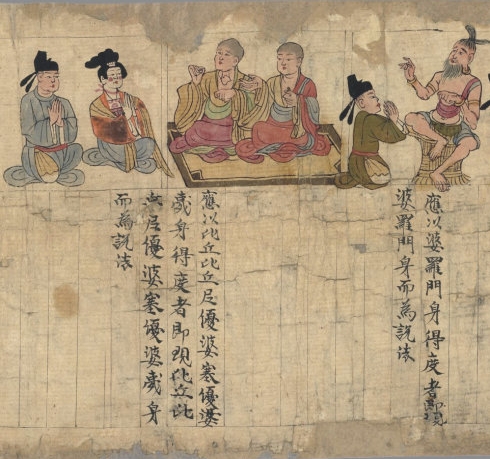 應以婆羅門身得度者即現
婆羅門身而為說法
應以比丘比丘尼優婆塞優婆
夷身得度者即現比丘比
丘尼優婆塞優婆夷身
而為說法